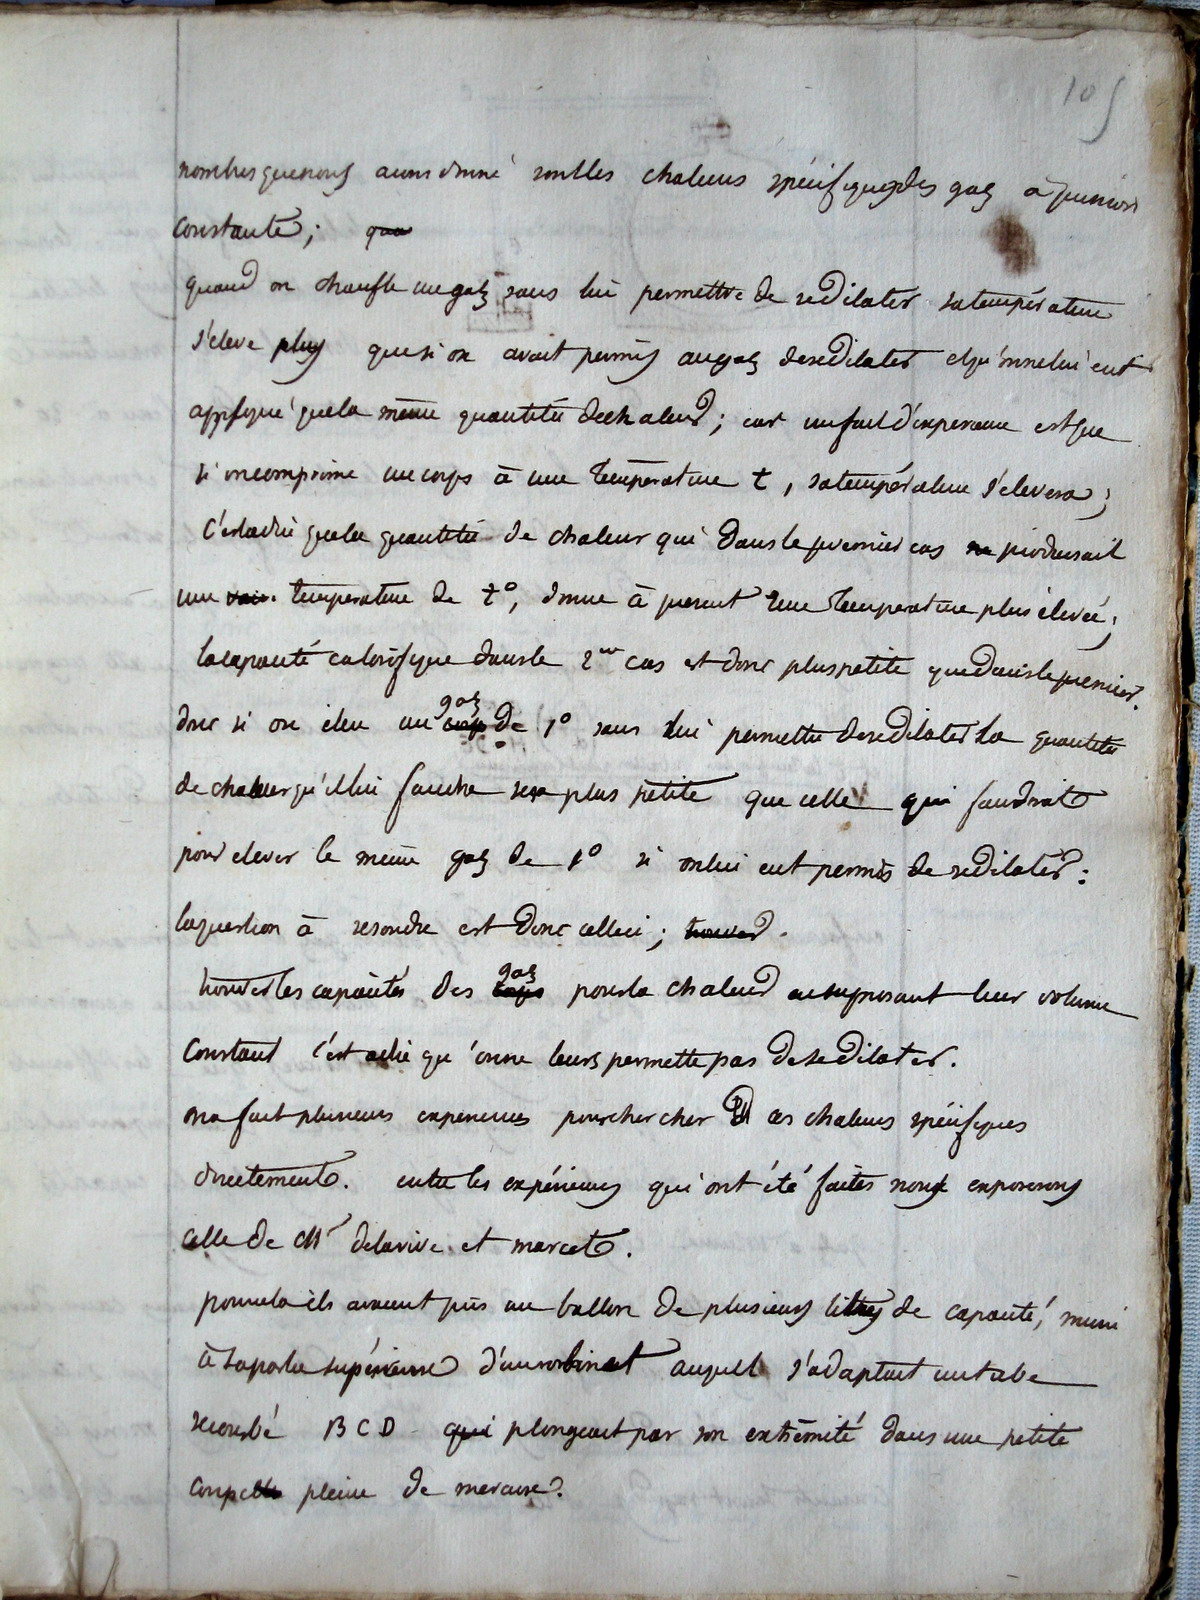 105
nombres que nous avons donné sont les chaleurs spécifiques des gaz a pression
constante; que
quand on chauffe un gaz sans lui permettre de se dilater sa température
s'eleve plus que si on avait permis au gaz de se dilater et qu'on ne lui eut
appliqué que la même quantité de chaleur; car un fait d'experience est que
si on comprime un corps à une température t, sa température s'elevera;
c'est a dire que la quantité de chaleur qui dans le premier cas ne produisait
une temperature de t°, donne à present une temperature plus élevée;
la capacité calorifique dans le 2me cas est donc plus petite que dans le premier.
gaz
donc si on eleve un corps de 1° sans lui permettre de se dilater la quantité
de chaleur qu'il lui faudra sera plus petite que celle qui faudrait
pour elever le même gaz de 1° si on lui eut permis de se dilater:
la question à resoudre est donc celle ci; trouver.
gaz
trouver les capacités des corps pour la chaleur en supposant leur volume
constant c'est a dire qu'on ne leurs permette pas de se dilater.
on a fait plusieurs experiences pour chercher ces chaleurs spécifiques
directement. entre les expériences qui ont été faites nous exposerons
celle de Mr delarive et marcet.
pour cela ils avaient pris un ballon de plusieurs litres de capacité, muni
à sa partie supérieure d'un robinet auquel s'adaptait un tube
recourbé BCD qui plongeait par son extrémité dans une petite
coupelle pleine de mercure.